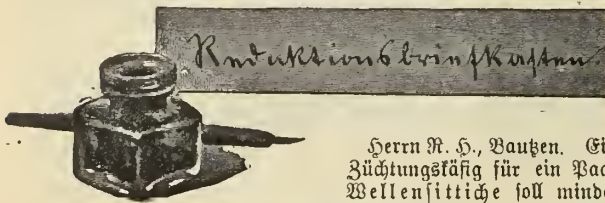 Redaktionsbriefkasten.
Herrn R. H., Bautzen. Ei
Züchtungskäfig für ein Paa
Wellensittiche soll minde